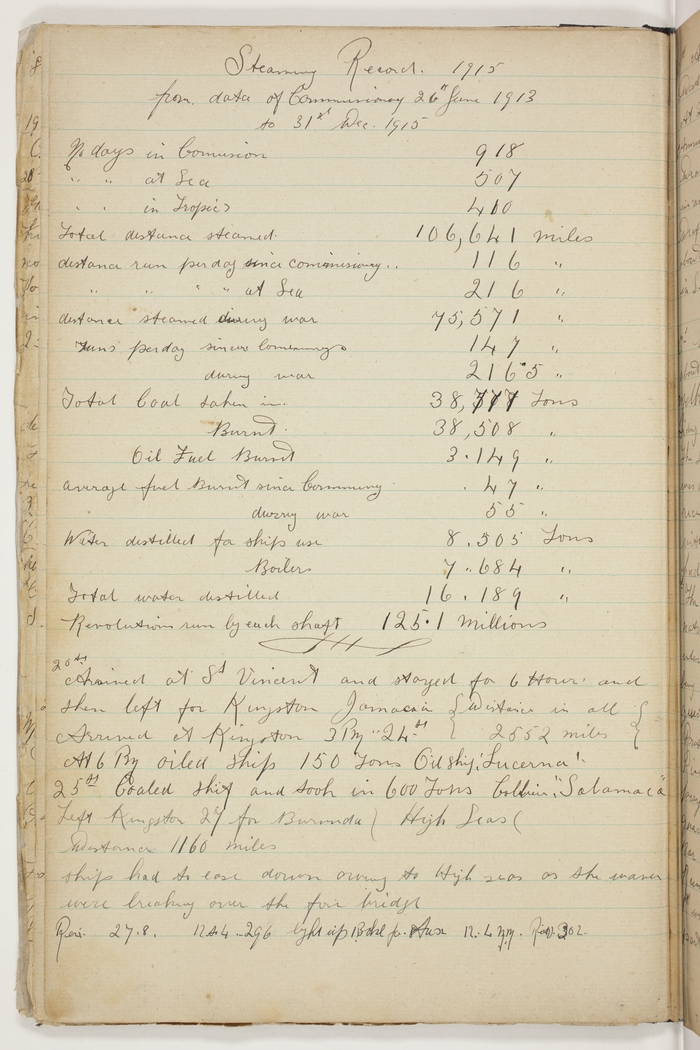 Steaming Record. 1915
from data of Commissiong 26th June 1913
to 31st Dec. 1915
No days in Comission 918
" " at Sea 507
" " in Tropics 410
Total distance steamed. 106,641 miles
distance run per day since commisiong.. 116 "
" " " " at Sea 216 "
distance steamed during war 75,571 "
runs per day since Commisiong 147 "
during war 216.5 "
Total Coal taken in. 38,777 Tons
Burnt. 38,508 "
Oil Fuel Burnt 3.149 "
average fuel Burnt since Commiong . 47 "
during war 55 "
Water distilled for ships use 8.505 Tons
Boilers 7.684 "
Total water distilled 16.189 "
Revolutions run by each shaft 125.1 millions
20th Arrived at St Vincent and stayed for 6 Hours and
then left for Kingston Jamacia { Distance in all {
Arrived at Kingston 3 24th { 2552 miles {
At 6 oiled ship 150 Tons Oil ship "Lucerna".
25th Coaled ship and took in 600 Tons Collier "Salamaca"
Left Kingston 27 for Burmuda ( High Seas (
Distance 1160 miles
ships had to ease down owing to High seas as she waves
were breaking over the fore bridge
Rev. 27.8. 12.4.4 - 296 light up 12.4 Rev. 302.